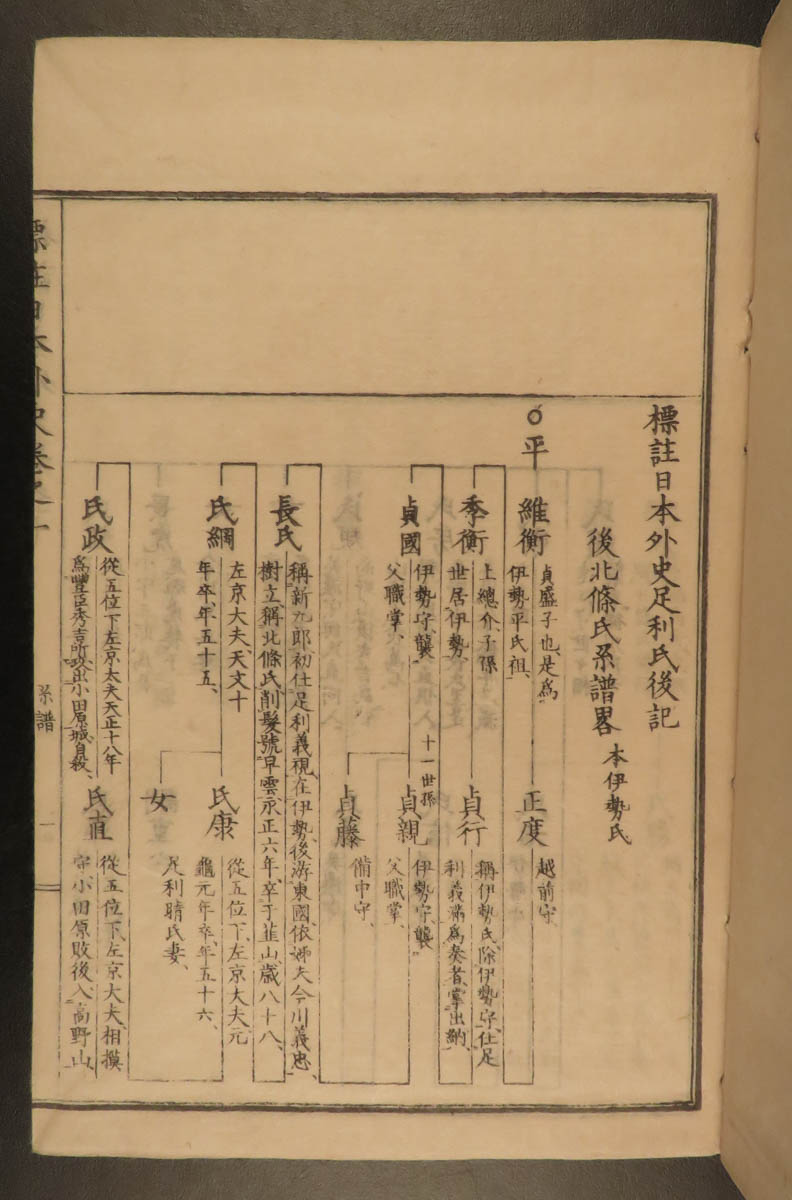 標註日本外史足利氏後記
後北條氏系譜畧 本伊勢氏
平
維衡
貞盛子也、是爲
伊勢平氏祖、
正度
越前守
季衡
上總介、子孫
世居伊勢、
貞行
稱伊勢氏、除伊勢守、仕足
利義滿爲奏者、掌出納、
十一世孫
貞國
伊勢守、襲
父職掌、
貞親
伊勢守、襲
父職掌、
貞藤
備中守、
長氏
稱新九郎、初仕足利義視、在伊勢、後游東國、依姊夫今川義忠、
樹立、稱北條氏、削髮號早雲、永正六年、卒于韮山、歲八十八、
氏綱
左京大夫、天文十
年卒、年五十五、
氏康
從五位下、左京大夫、元
龜元年卒、年五十六、
女
足利晴氏妻、
氏政
從五位下、左京太夫、天正十八年
爲豐臣秀吉所攻、出小田原城自殺、
氏直
從五位下、左京大夫、相摸
守、小田原敗後、入高野山
標註日本外史卷之一
系譜
一